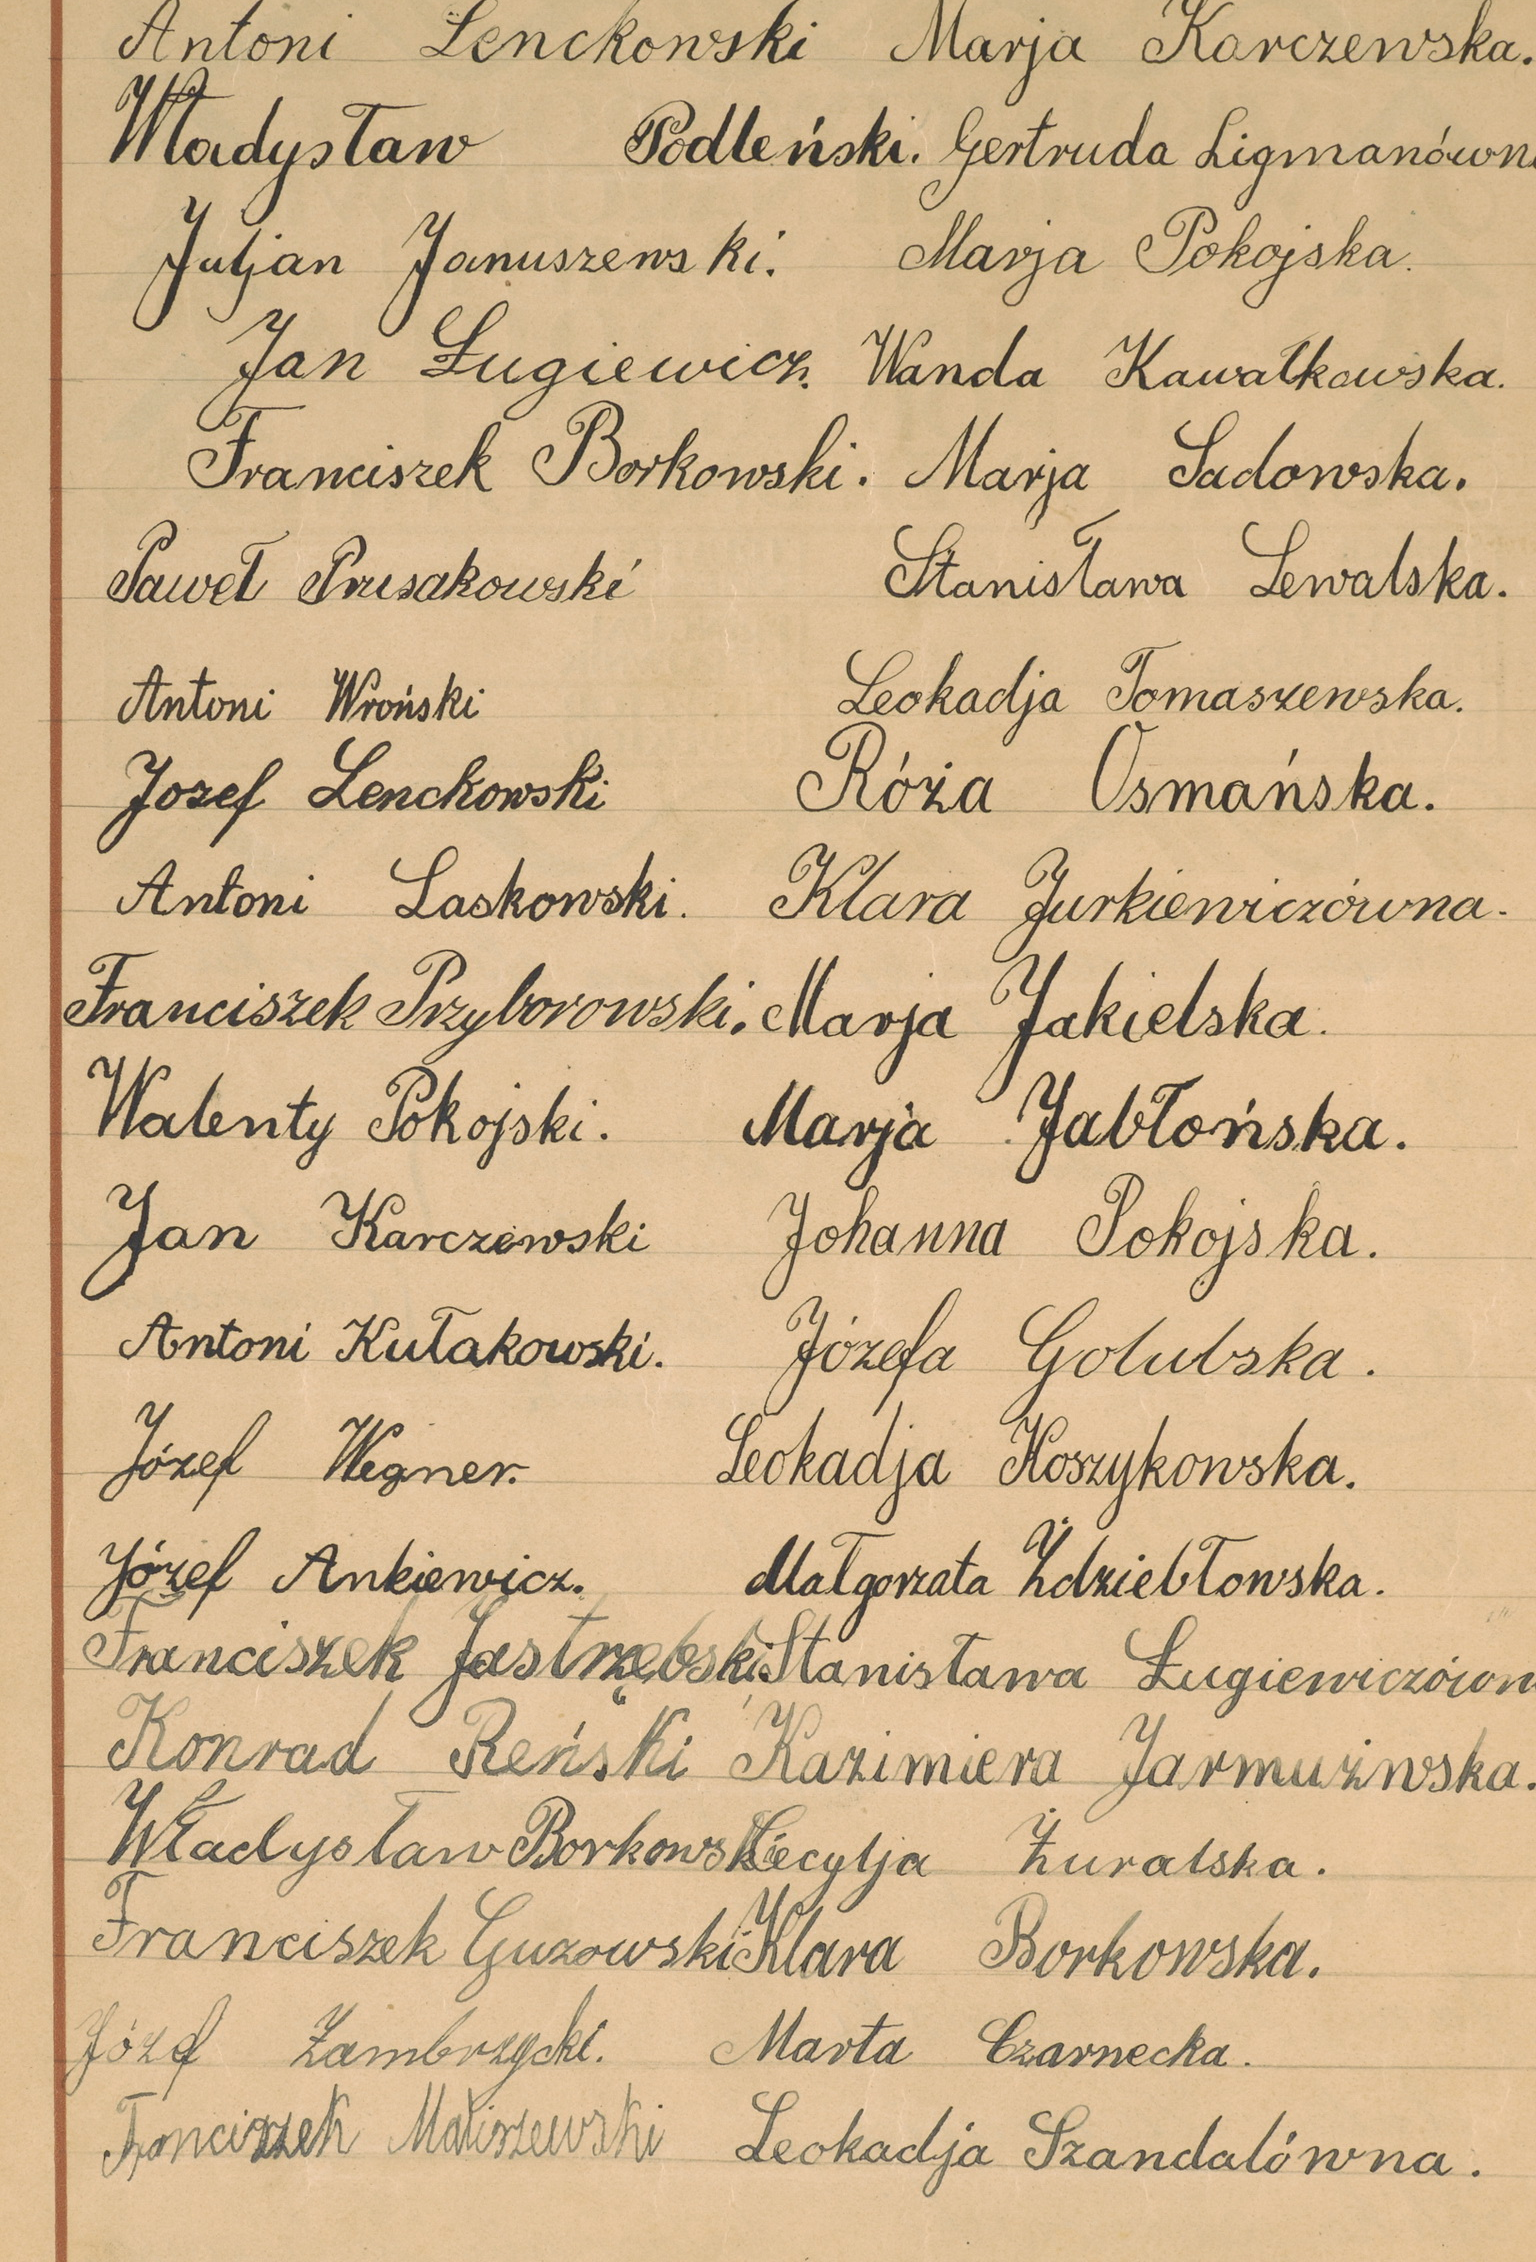 Antoni Lenckowski Marja Karczewska.
Władysław Podleński. Gertruda Ligmanówna
Juljan Januszewski. Marja Pokojska.
Jan Ługiewicz. Wanda Kawałkowska.
Franciszek Borkowski. Marja Sadowska.
Paweł Prusakowski Stanisława Lewalska.
Antoni Wroński Leokadja Tomaszewska.
Jozef Lenckowski Róża Osmańska.
Antoni Laskowski. Klara Jurkiewiczówna.
Franciszek Przyborowski. Marja Jakielska.
Walenty Pokojski. Marja Jabłońska.
Jan Karczewski Johanna Pokojska.
Antoni Kułakowski. Józefa Golubska.
Józef Wegner. Leokadja Koszykowska.
Józef Ankiewicz. Małgorzata Żdziebłowska.
Franciszek Jastrzębski Stanisława Ługiewiczówn
Konrad Reński Kazimiera Jarmużwska.
Władysław Borkowski Cecylja Żuralska.
Franciszek Guzowski Klara Borkowska.
Józef Zambrzycki. Marta Czarnecka.
Franciszek Matiszewski Leokadja Szandalówna.